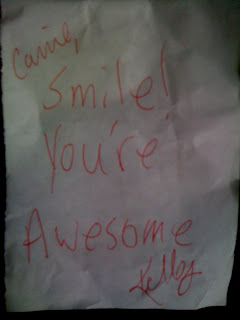 Carrie,
Smile!
You're
Awesome
Kelly